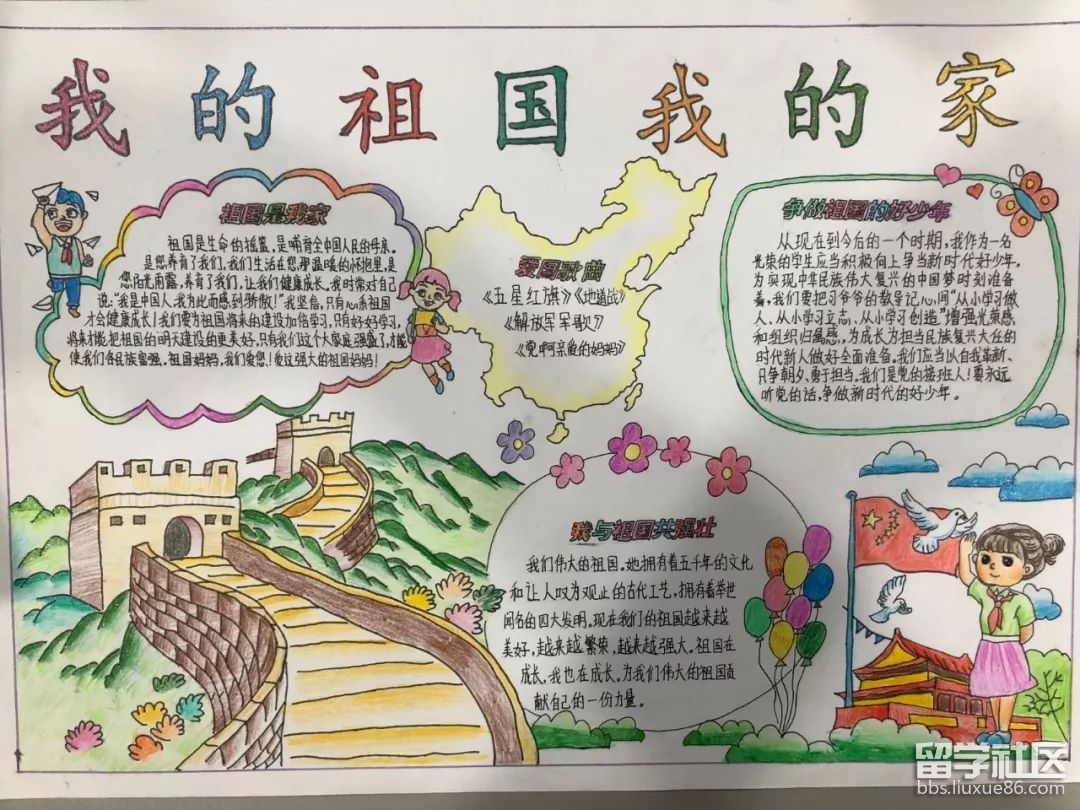 我的祖国我的家
祖国是我家
祖国是生命的摇篮，是哺育全中国人民的母亲。
是您养育了我们，我们生活在您那温暖的怀抱里，是
您阳光雨露，养育了我们，让我们健康成长。我时常对自己
说：“我是中国人，我为此而感到骄傲！”我坚信，只有心系祖国
才会健康成长！我们要为祖国将来的建设加倍学习，只有好好学习，
将来才能把祖国的明天建设的更美好，只有我们这个大家庭强盛了，才能
使我们各民族富强。祖国妈妈，我们爱您！爱这强大的祖国妈妈！
爱国歌曲
《五星红旗》《地道战》
《解放军军歌》
《党啊亲爱的妈妈》
争做祖国的好少年
从现在到今后的一个时期，我作为一名
光荣的学生应当积极向上争当新时代好少年，
为实现中华民族伟大复兴的中国梦时刻准备
着，我们要把习爷爷的教导记心间“从小学习做
人、从小学习立志、从小学习创造”增强光荣感
和组织归属感，为成长为担当民族复兴大任的
时代新人做好全面准备。我们应当以自我革新、
只争朝夕、勇于担当。我们是党的接班人！要永远
听党的话，争做新时代的好少年。
我与祖国共强壮
我们伟大的祖国，她拥有着五千年的文化
和让人叹为观止的古代工艺，拥有着举世
闻名的四大发明。现在我们的祖国越来越
美好，越来越繁荣，越来越强大。祖国在
成长，我也在成长，为我们伟大的祖国贡
献自己的一份力量。
留学社区
bbs.liuxue86.com